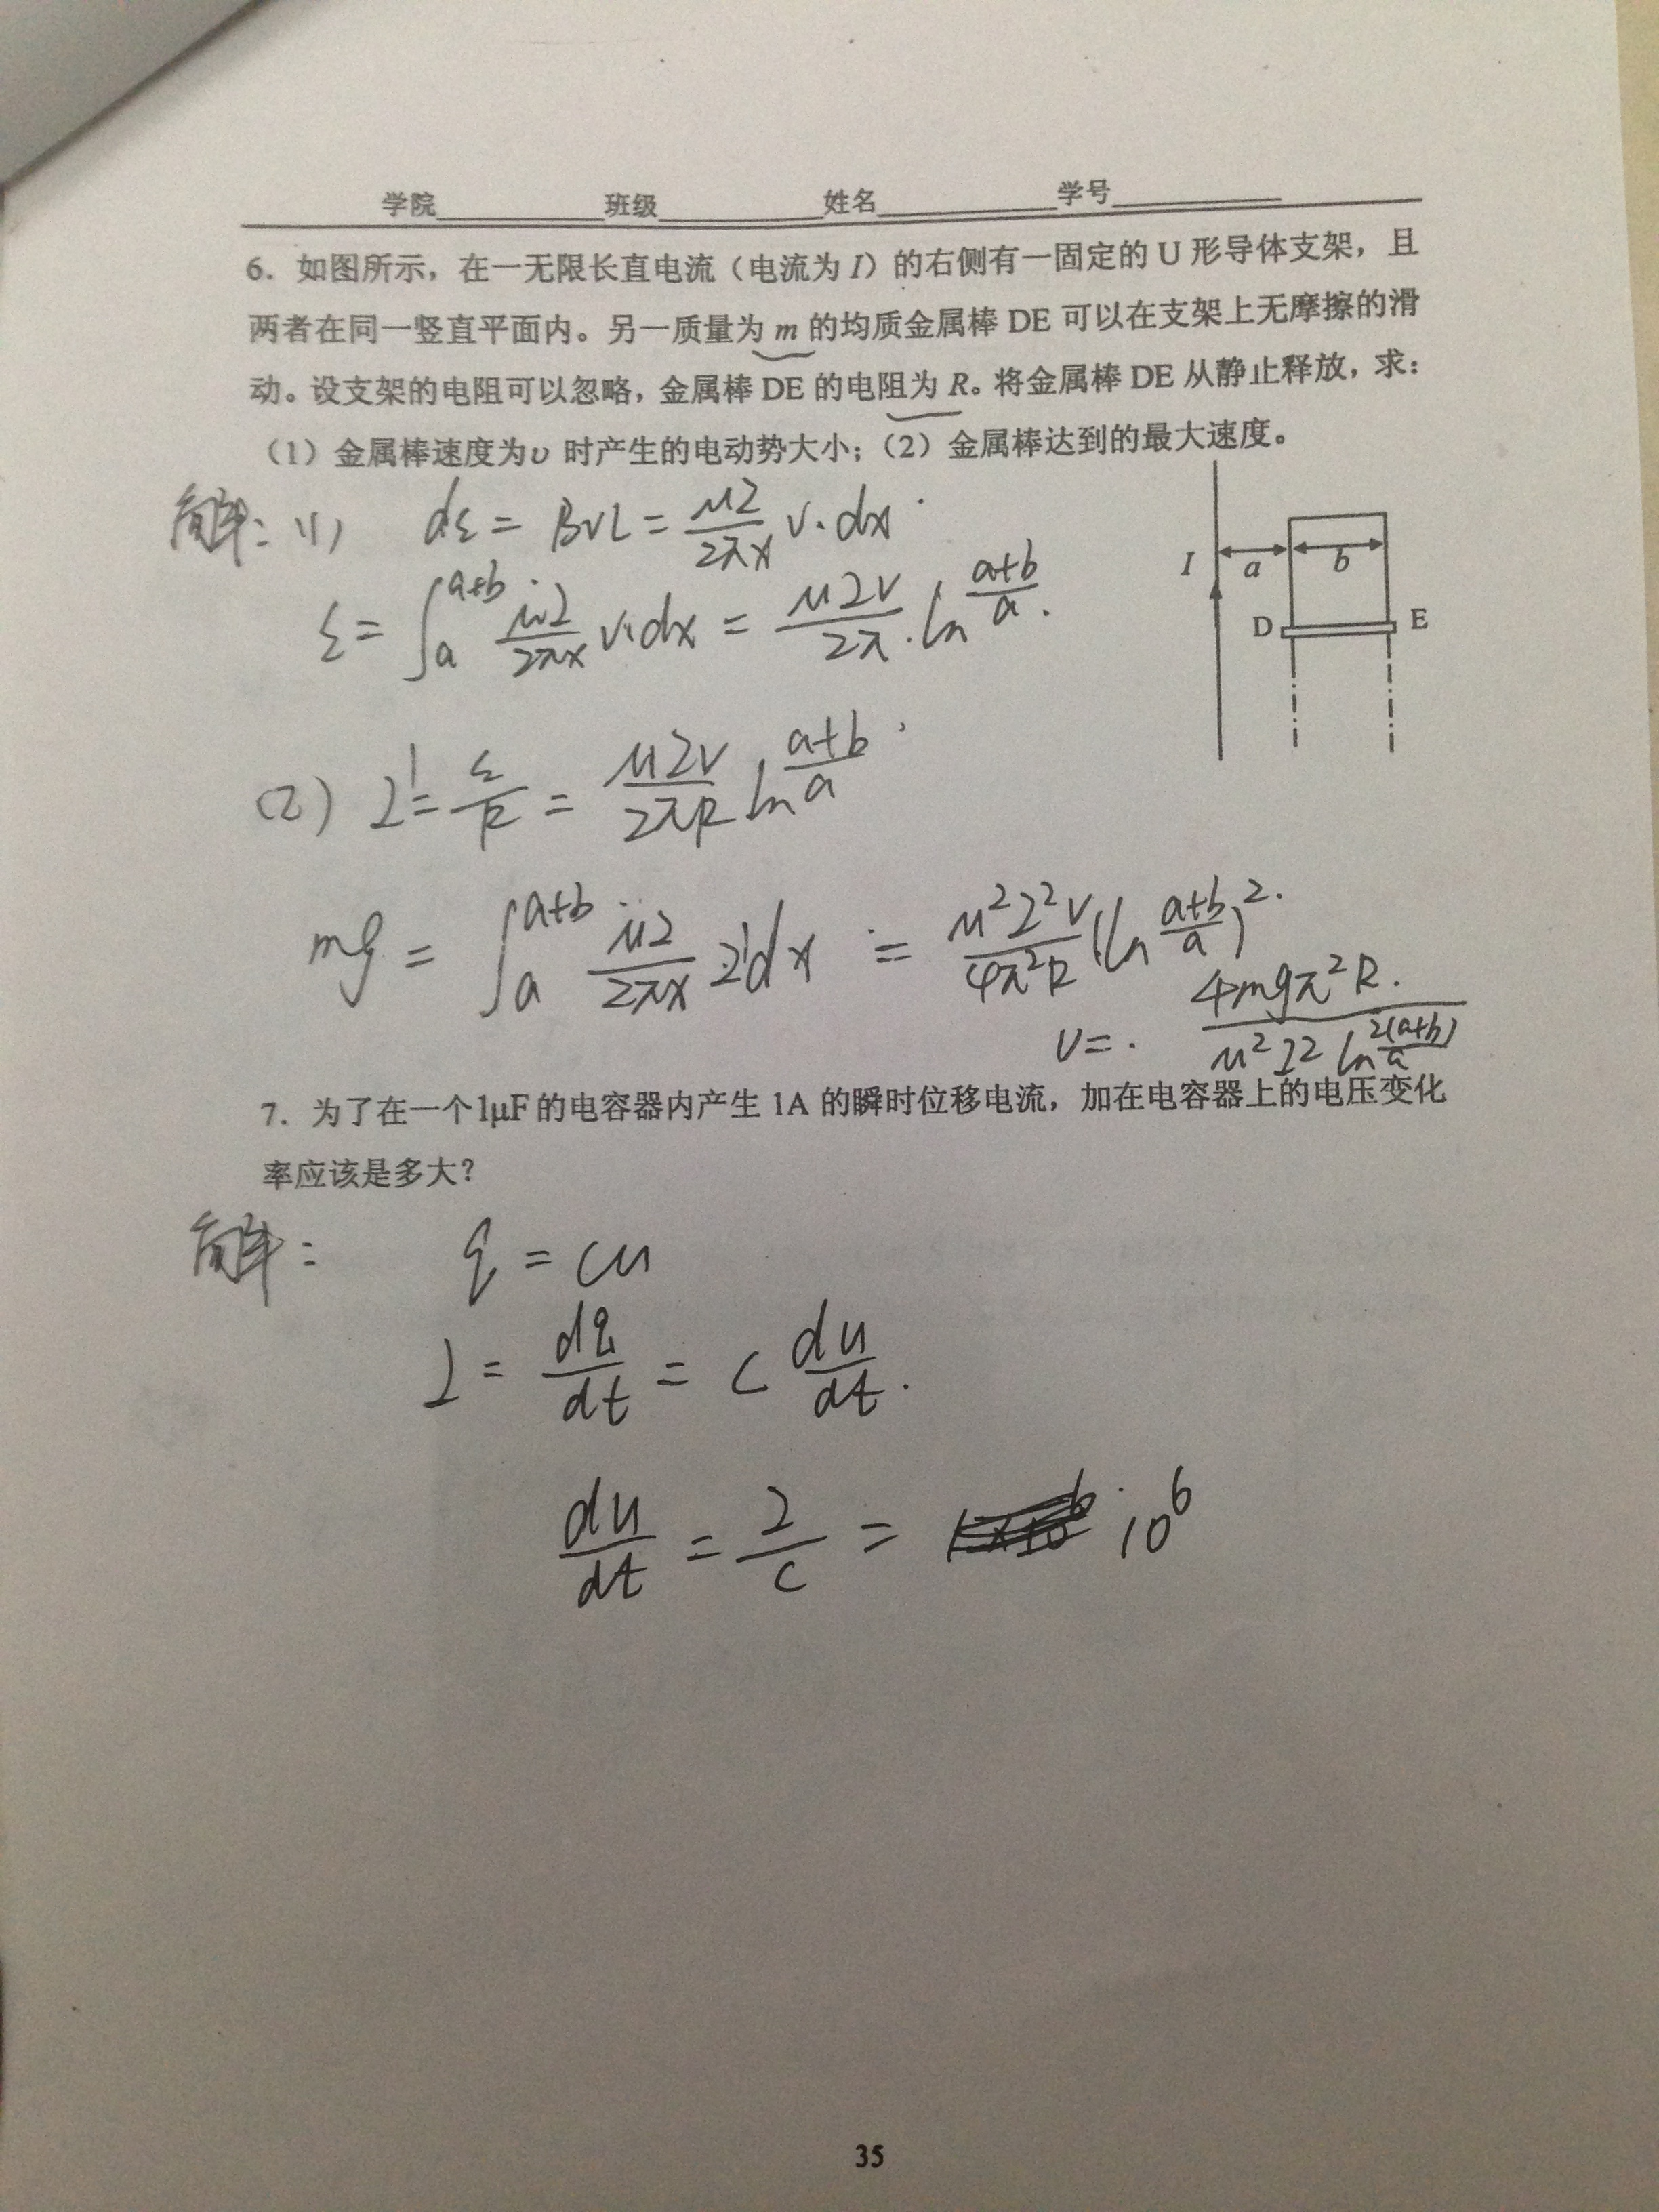 学院 班级 姓名 学号
6. 如图所示，在一无限长直电流（电流为 I）的右侧有一固定的 U 形导体支架，且
两者在同一竖直平面内。另一质量为 m 的均质金属棒 DE 可以在支架上无摩擦的滑
动。设支架的电阻可以忽略，金属棒 DE 的电阻为 R。将金属棒 DE 从静止释放，求：
（1）金属棒速度为υ 时产生的电动势大小；（2）金属棒达到的最大速度。
解: (1) dε = BvL = μI/2πx v·dx
ε = ∫_a^{a+b} μI/2πx v·dx = μIv/2π · ln (a+b)/a.
I a b
D E
(2) I' = ε/R = μIv/2πR ln (a+b)/a
mg = ∫_a^{a+b} μI/2πx I'dx = μ²I²v/4π²R (ln (a+b)/a)².
v = 4mgπ²R / μ²I² ln² (a+b)/a
7. 为了在一个 1μF 的电容器内产生 1A 的瞬时位移电流，加在电容器上的电压变化
率应该是多大？
解: q = cu
I = dq/dt = c du/dt.
du/dt = I/c = 10⁶
35